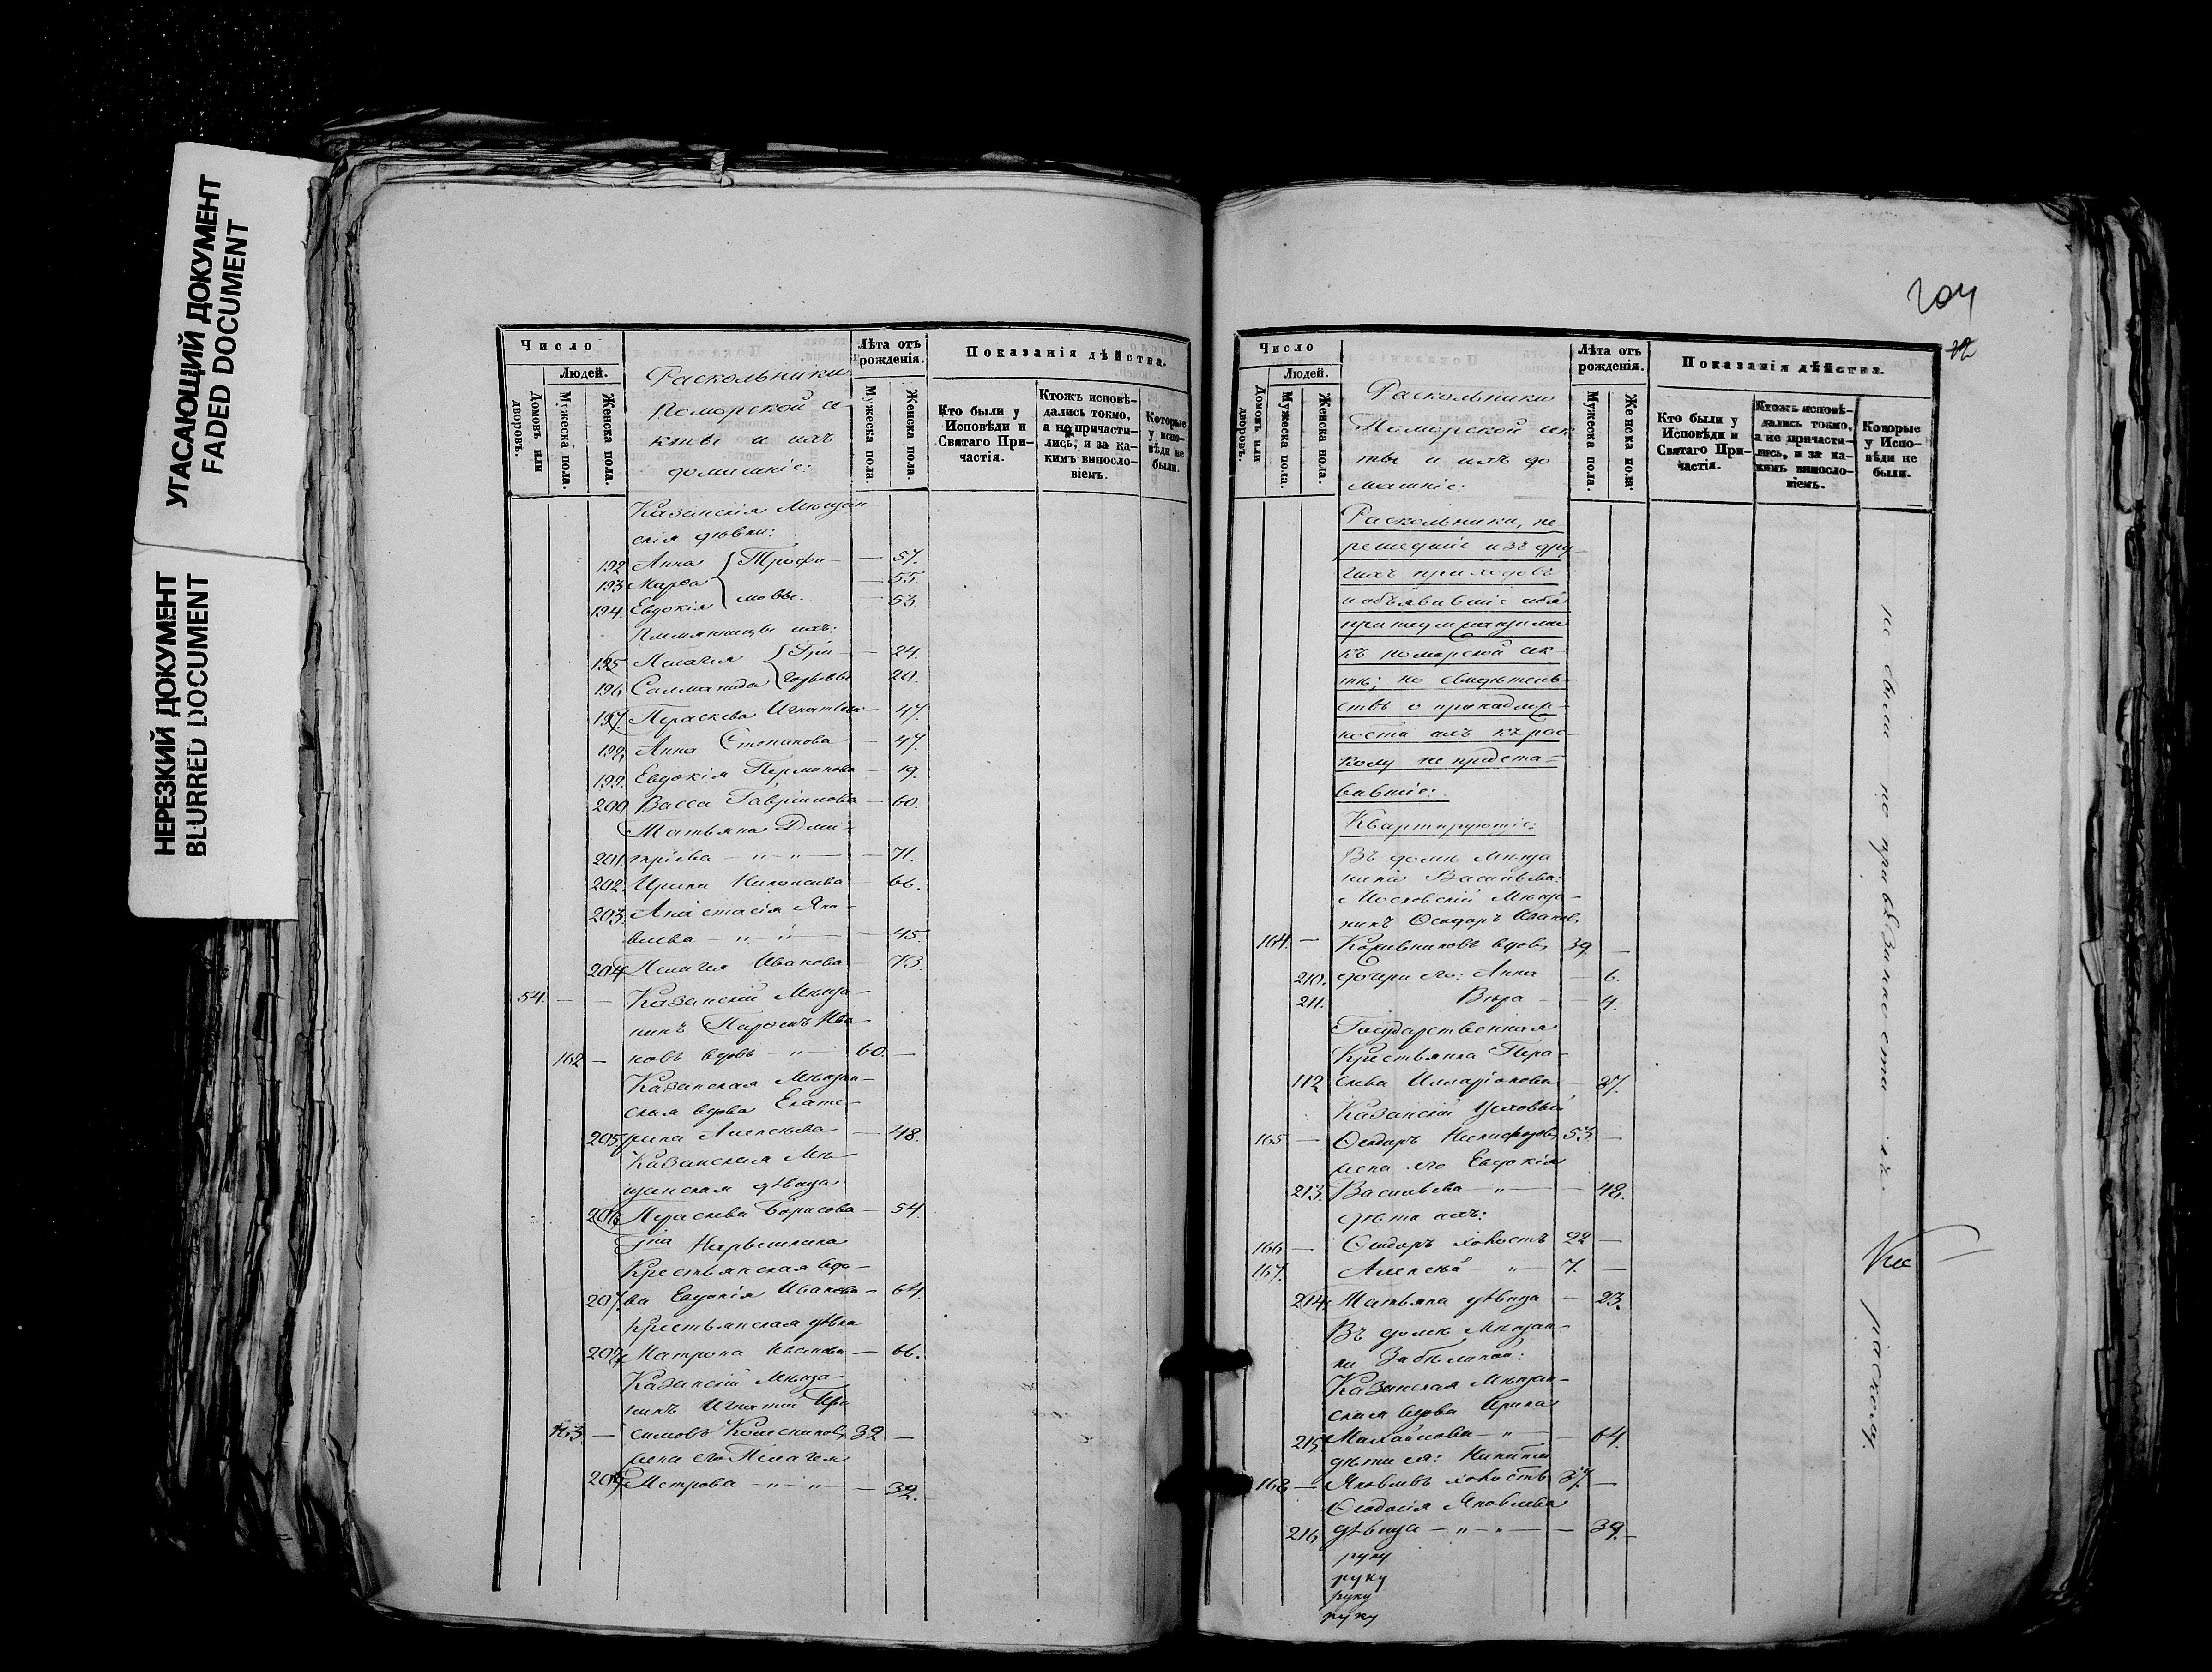 УГАСАЮЩИЙ ДОКУМЕНТ
FADED DOCUMENT
НЕРЕЗКИЙ ДОКУМЕНТ
BLURRED DOCUMENT
Число
Людей.
Домовъ или дворовъ.
Мужеска пола.
Женска пола.
Раскольники
Поморской се-
кты и ихъ
домашніе:
Лѣта отъ рожденія.
Мужеска пола.
Женска пола.
Показанія дѣйства.
Кто были у Исповѣди и Святаго При-частія.
Ктожъ исповѣ-дались токмо, а не причасти-лись, и за ка-кимъ винословіемъ.
Которые у испо-вѣди не были.
Казанскія Мѣщан-
скія дѣвки:
192 Анна Трофи- — 57.
193 Марѳа — 55.
194. Евдокія мовы. — 53.
Племянницы ихъ:
195 Пелагея Гри- — 24.
196 Саломанида горьевы 20.
197. Параскева Игнатьева — 47.
198. Анна Степанова — 47.
199. Евдокія Перминова — 19.
200 Васса Гавріилова — 60.
Татьяна Дми-
201. тріева — " — " — 71.
202. Ирина 66.
203. Анастасія Яко-
влева — " — " — 45.
204 Пелагея Иванова — 73.
54. — — Казанскій Мѣща-
нинъ Ива
162 — новъ вдовъ — " — 60. —
Казанская Мѣщан-
ская вдова Екате-
205 рина Алексѣева — 48.
Казанская Мѣ-
щанская дѣвица
206 Параскева Борисова — 54.
Гна Нарышкина
Крестьянская вдо-
207. ва Евдокія Иванова — 64.
Крестьянская дѣвка
208 Матрона Иванова — 66.
Казанскій Мѣща-
нинъ Игнатій Гра
163. — симовъ Колесниковъ 32 —
жена его Пелагея
209 Петрова — " — " — 32.
204
22
Число
Людей.
Домовъ или дворовъ.
Мужеска пола.
Женска пола.
Раскольники
Поморской сек
ты и ихъ до
машніе:
Лѣта отъ рожденія.
Мужеска пола.
Женска пола.
Показанія дѣйства.
Кто были у Исповѣди и Святаго При-частія.
Ктожъ исповѣ-дались токмо, а не причастя-лись, и за ка-кимъ винословіемъ.
Которые у Испо-вѣди не были.
Раскольники, пе
решедшіе изъ дру-
гихъ приходовъ
и объявившіе себя
принадлежащими
къ поморской сек-
тѣ; но свидѣтель-
ствъ о принадлеж-
ности ихъ къ рас-
колу не предста-
вившіе:
Квартирующіе:
Въ домѣ Мѣща
нина Васильева:
Московскій Мѣща-
нинъ Ѳеодоръ Ивановъ
164. — вдовъ 39. —
210. дочери его: Анна — 6.
211. Вѣра — 4.
Государственная
Крестьянка Пара-
112 скева Иларіонова — 37.
Казанскій Цеховый
165 — Ѳеодоръ Никифоровъ 53. —
жена его Евдокія
213. Васильева — " — — 48.
дѣти ихъ:
166 — Ѳеодоръ холостъ 22 —
167. Алексѣй — " — 7. —
214. Татьяна дѣвица — 23.
Въ домѣ Мѣщан-
ки Забѣлиной:
Казанская Мѣщан-
ская вдова Ирина
215 Михайлова — " — — 64.
дѣти ея: Никита
168 — Яковлевъ холостъ 37. —
Ѳеодосія Яковлева
216 дѣвица — " — " — — 39.
руку
руку
руку
руку
не были по приверженности къ
расколу